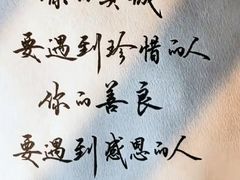 你的真诚
要遇到珍惜的人
你的善良
要遇到感恩的人